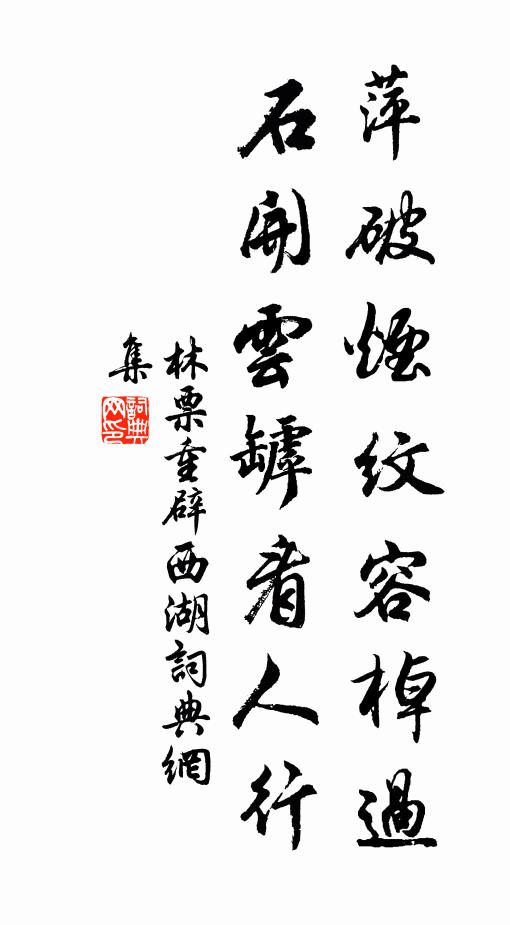 萍破煙紋容棹過
石開雲罅看人行
林栗重辟西湖詞典網
集
詞典网印